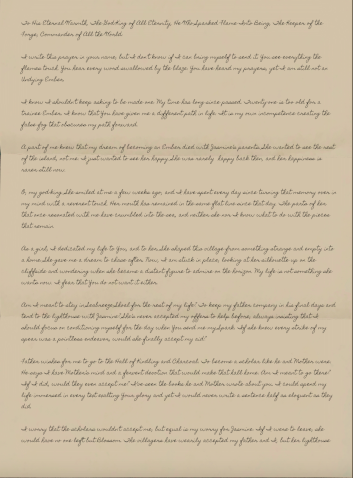 To His Eternal Warmth, The God King of All Eternity, He Who Sparked Flame Into Being, The Keeper of the
Forge, Commander of All the World

I write this prayer in your name, but I don't know if I can bring myself to send it. You see everything the
flames touch. You hear every word swallowed by the blaze. You have heard my prayers, yet I am still not an
Undying Ember.

I know I shouldn't keep asking to be made one. My time has long since passed. Twenty one is too old for a
trainee Ember. I know that You have given me a different path in life. It is my own incompetence creating the
false fog that obscures my path forward.

A part of me knows that my dream of becoming an Ember died with Jasmine's parents. She wanted to see the rest
of the island, not me. I just wanted to see her happy. She was rarely happy back then, and her happiness is
rarer still now.

O, my god king. She smiled at me a few weeks ago, and I have spent every day since turning that memory over in
my mind with a reverent touch. Her mouth has remained in the same flat line since that day. The parts of her
that once resonated with me have crumbled into the sea, and neither she nor I know what to do with the pieces
that remain.

As a girl, I dedicated my life to You, and to her. She shaped this village from something strange and empty into
a home. She gave me a dream to chase after. Now, I am stuck in place, looking at her silhouette up on the
cliffside and wondering when she became a distant figure to admire on the horizon. My life is not something she
wants now. I fear that You do not want it either.

Am I meant to stay in for the rest of my life? To keep my father company in his final days and
tend to the lighthouse with Jasmine? She's never accepted my offers to help before, always insisting that I
should focus on conditioning myself for the day when You send me my Spark. If she knew every strike of my
spear was a pointless endeavor, would she finally accept my aid?

Father wishes for me to go to the Hall of Kindling and Charcoal. To become a scholar like he and Mother were.
He says I have Mother's mind and a fervent devotion that would make that hall home. Am I meant to go there?
If I did, would they even accept me? I've seen the books he and Mother wrote about you. I could spend my
life immersed in every text extolling Your glory and yet I would never write a sentence half as eloquent as they
did.

I worry that the scholars wouldn't accept me, but equal is my worry for Jasmine. If I were to leave, she
would have no one left but Blossom. The villagers have warily accepted my father and I, but her lighthouse